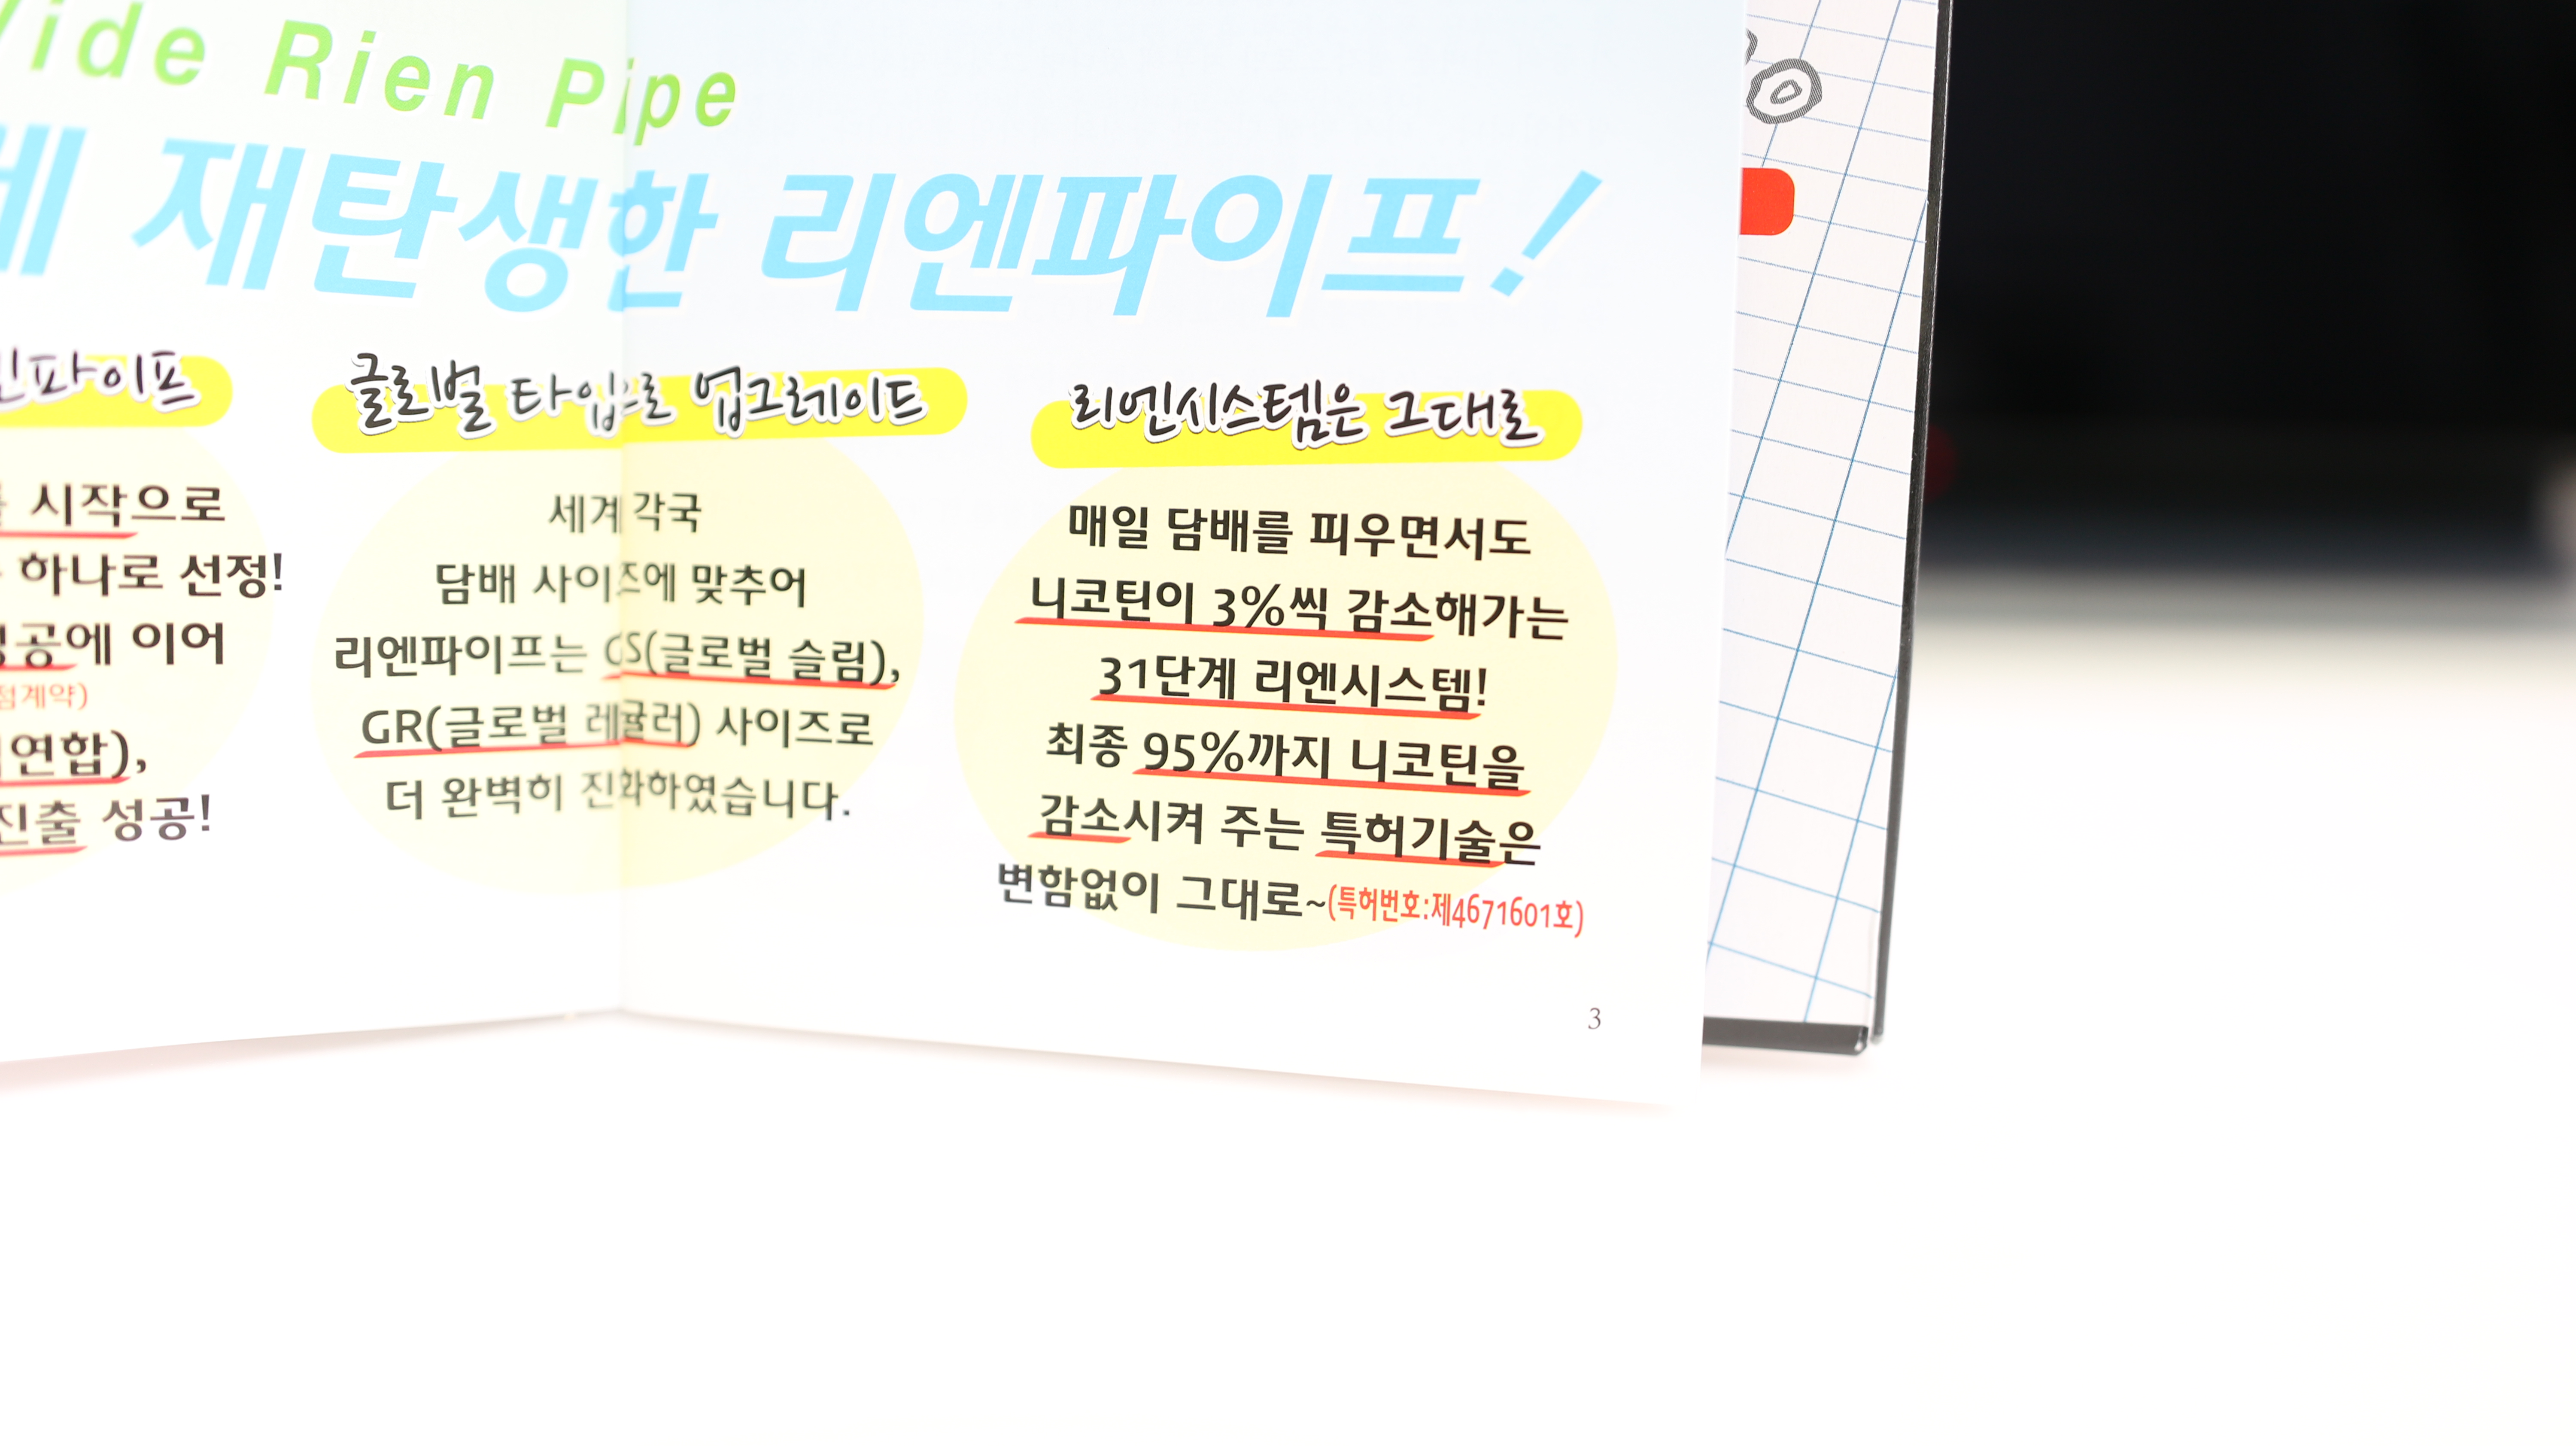 Rien Pipe
재탄생한 리엔파이프!
파이프
시작으로
하나로 선정!
에 이어
점계약)
연합),
진출 성공!
글로벌 타입으로 업그레이드
세계 각국
담배 사이즈에 맞추어
리엔파이프는 GS(글로벌 슬림),
GR(글로벌 레귤러) 사이즈로
더 완벽히 진화하였습니다.
리엔시스템은 그대로
매일 담배를 피우면서도
니코틴이 3%씩 감소해가는
31단계 리엔시스템!
최종 95%까지 니코틴을
감소시켜 주는 특허기술은
변함없이 그대로~(특허번호:제4671601호)
3